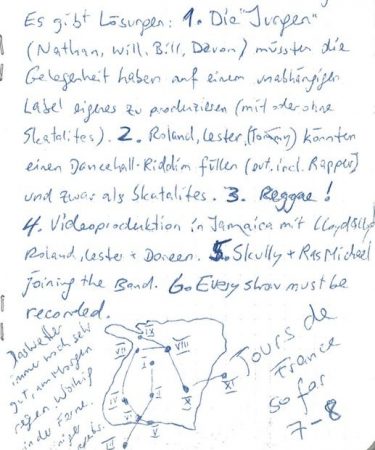 Es gibt Lösungen: 1. Die "Jungen"
(Nathan, Will, Bill, Devon) müssten die
Gelegenheit haben auf einem unabhängigen
Label eigenes zu produzieren (mit oder ohne
Skatalites). 2. Roland, Lester, (Tommy) könnten
einen Dancehall-Riddim füllen (evt. incl. Rapper)
und zwar als Skatalites. 3. Reggae!
4. Videoproduktion in Jamaica mit Lloyd & Lloyd
Roland, Lester + Doreen. 5. Skully + Ras Michael
joining the Band. 6. Every show must be
recorded.
Das Wetter
immer noch sehr
gut, am Morgen
regen. Wolkig
in der Ferne.
IX
VII
VIII
I
II
X
XI
V
Tours de
France
so far
7-8